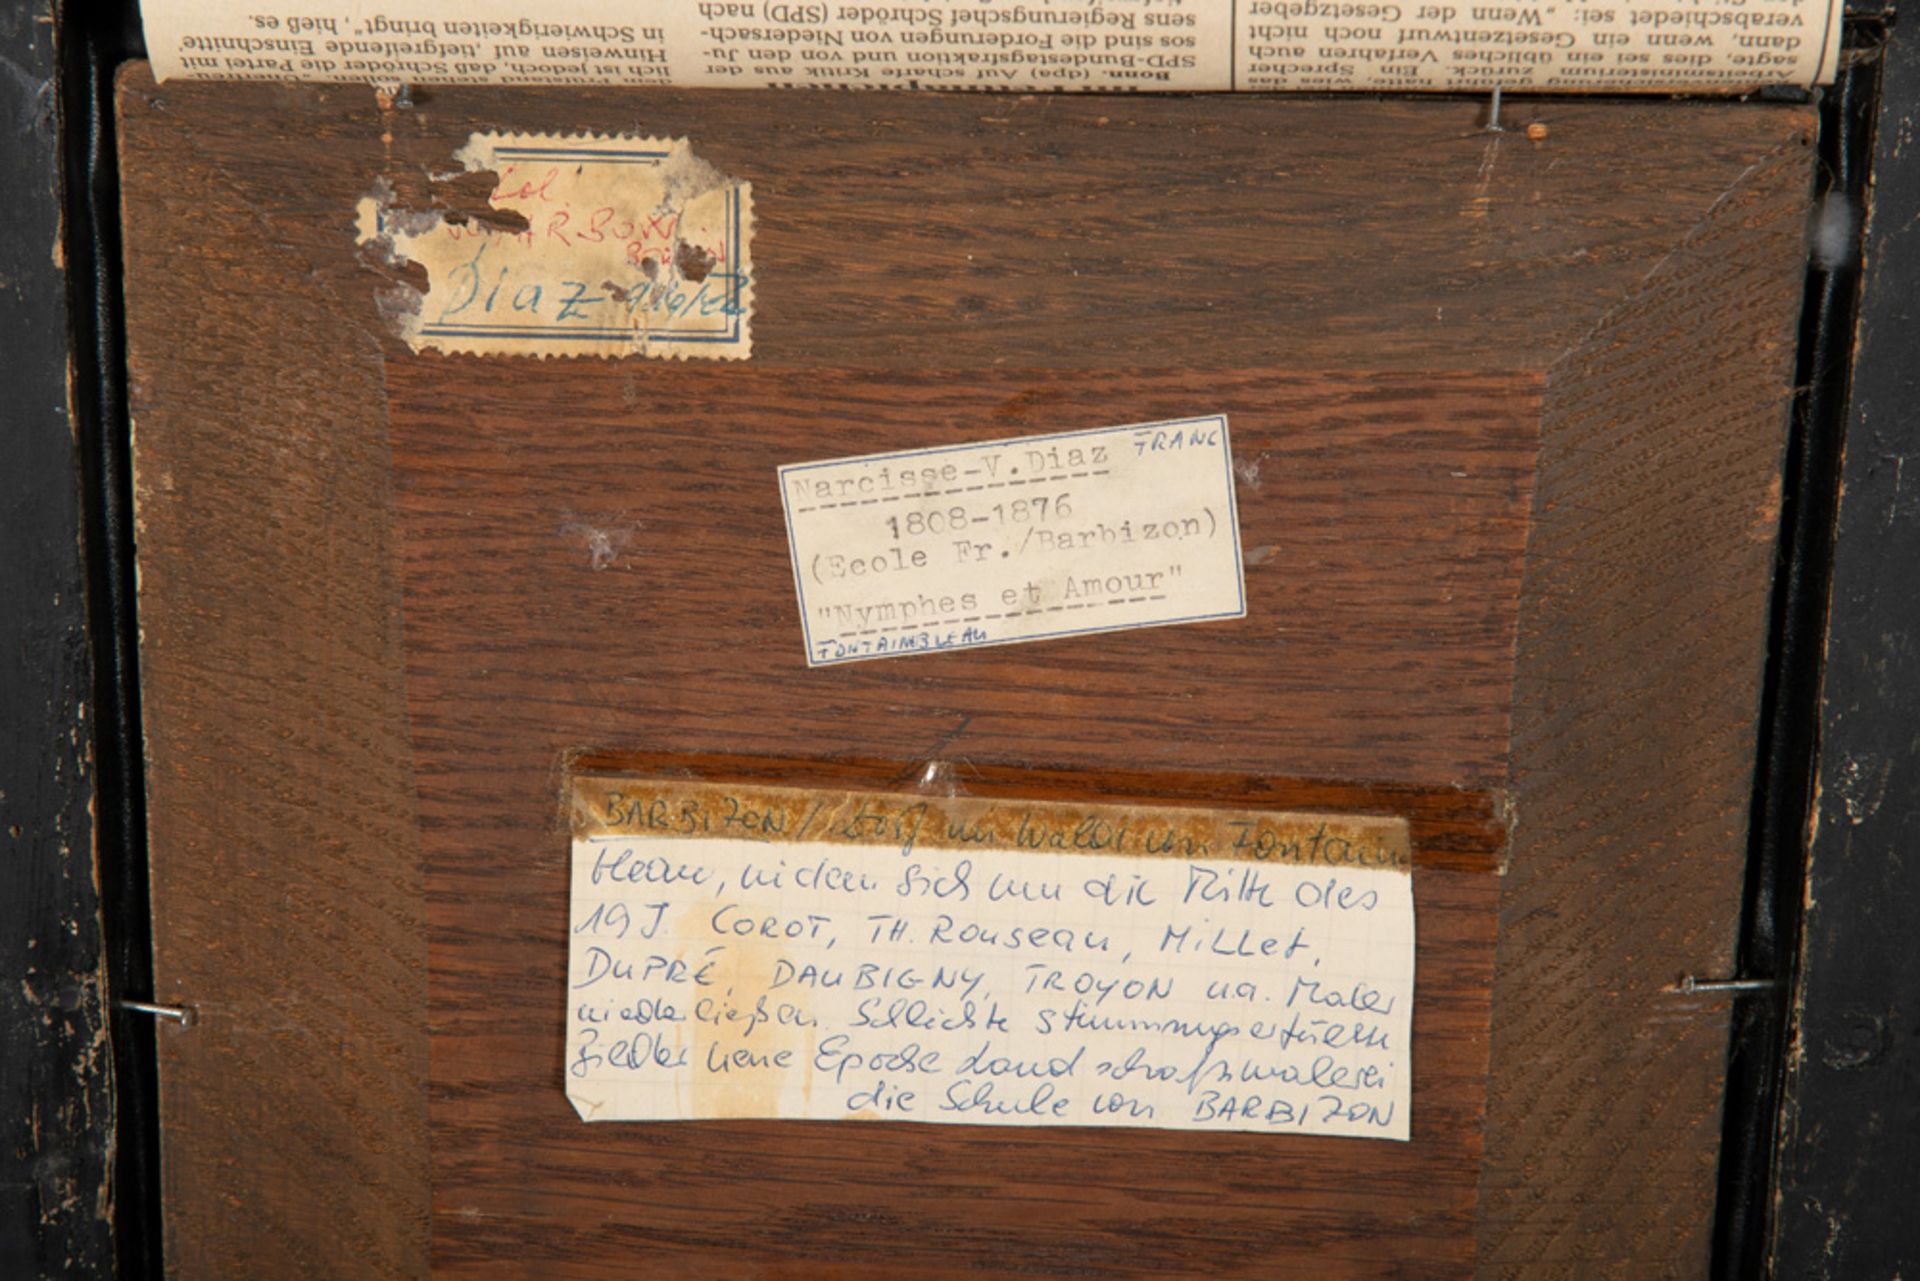 den
lich ist jedoch, daß Schröder die Partei mit
Hinweisen auf „tiefgreifende Einschnitte
in Schwierigkeiten bringt“, hieß es.
Bonn. (dpa) Auf scharfe Kritik aus der
SPD-Bundestagsfraktion und von den Ju-
sos sind die Forderungen von Niedersach-
sens Regierungschef Schröder (SPD) nach
Arbeitsministerium zurück. Ein Sprecher
sagte, dies sei ein übliches Verfahren auch
dann, wenn ein Gesetzentwurf noch nicht
verabschiedet sei: „Wenn der Gesetzgeber
Col.
Diaz
Narcisse-V.Diaz FRANC
1808-1876
(Ecole Fr./Barbizon)
"Nymphes et Amour"
FONTAINBLEAU
BARBIZON / Dorf im Wald von Fontain
bleau, in dem sich um die Mitte des
19 J. COROT, TH. Rouseau, MiLLet,
DuPRÉ, DAUBIGNY, TROYON u.a. Maler
niederließen. Schlichte stimmungserfüllte
Bilder neue Epoche Landschaftsmalerei
die Schule von BARBIZON